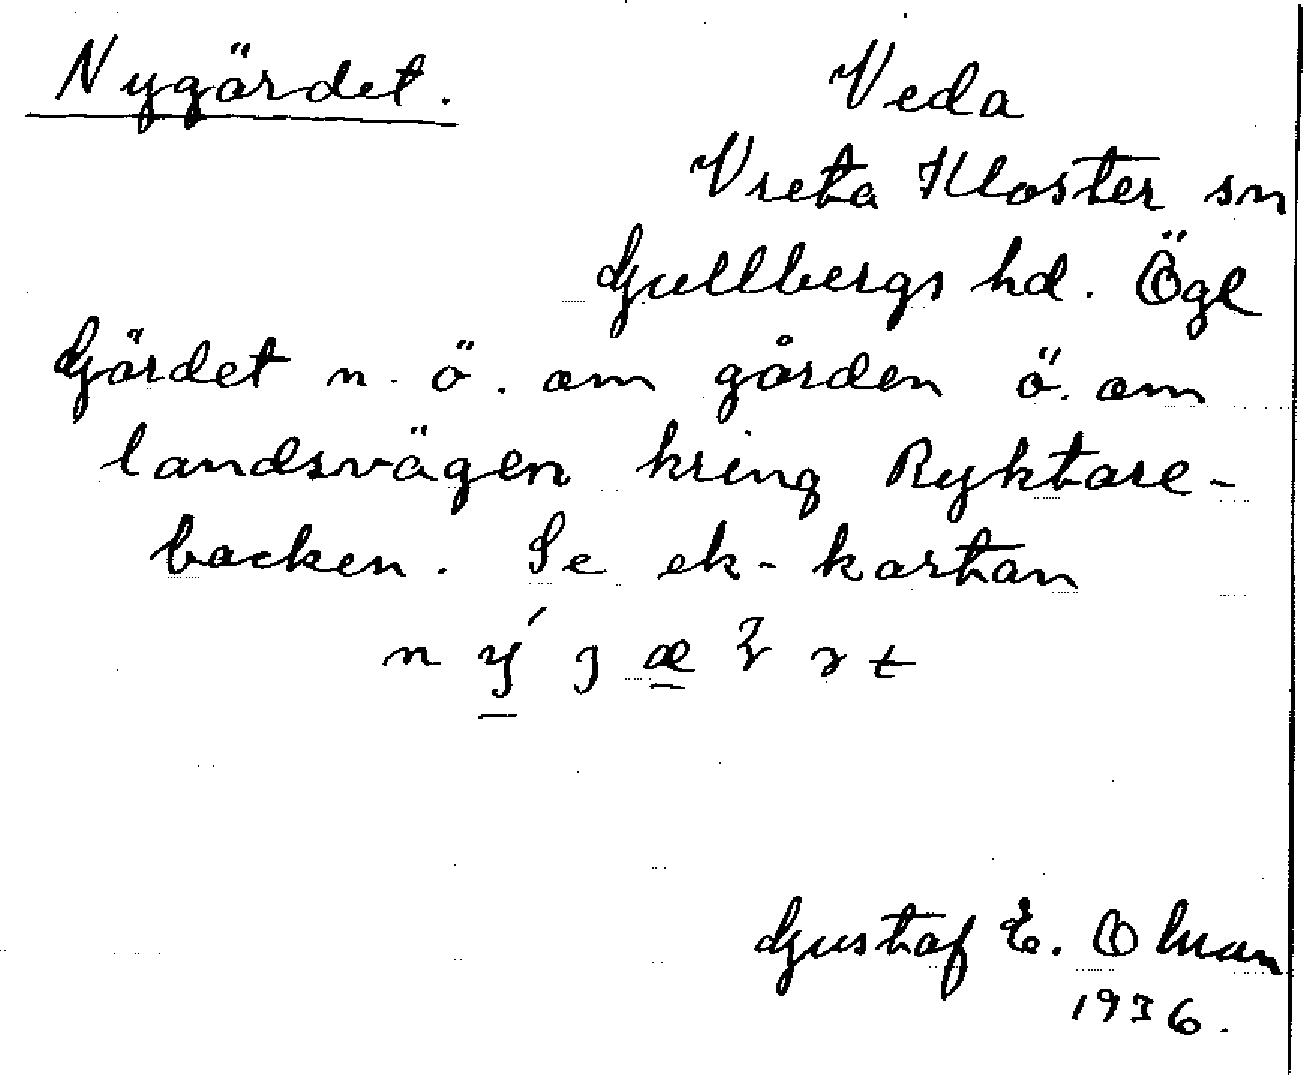 Nygärdet.
Veda
Vreta Kloster sn
Gullbergs hd. Ögl
Gärdet n. ö. om gården ö. om
landsvägen kring Ryktare-
backen. Se ek-kartan
Gustaf E. Olman
1936.